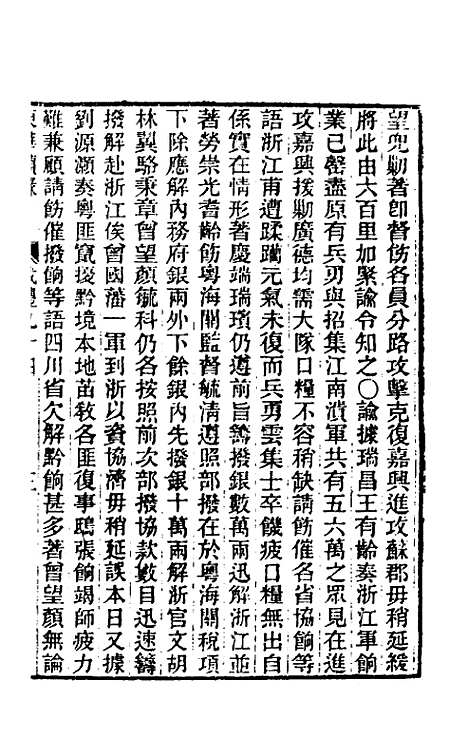 望兜勦著卽督飭各員分路攻擊克復嘉興進攻蘇郡毋稍延緩
將此由六百里加緊諭令知之〇諭據瑞昌王有齡奏浙江軍餉
業已罄盡原有兵勇與招集江南潰軍共有五六萬之眾見在進
攻嘉興援勦廣德均需大隊口糧不容稍缺請飭催各省協餉等
語浙江甫遭蹂躪元氣未復而兵勇雲集士卒饑疲口糧無出自
係實在情形著慶端瑞璸仍遵前旨籌撥銀數萬兩迅解浙江並
著勞崇光耆齡飭粵海關監督毓清遵照部撥在於粵海關稅項
下除應解內務府銀兩外下餘銀內先撥銀十萬兩解浙官文胡
林翼駱秉章曾望顏毓科仍各按照前次部撥協款數目迅速籌
撥解赴浙江俟曾國藩一軍到浙以資協濟毋稍延誤本日又據
劉源灝奏粵匪竄擾黔境本地苗教各匪復事鴟張餉竭師疲力
難兼顧請飭催撥餉等語四川省欠解黔餉甚多著曾望顏無論
東華續錄 咸豐九十四